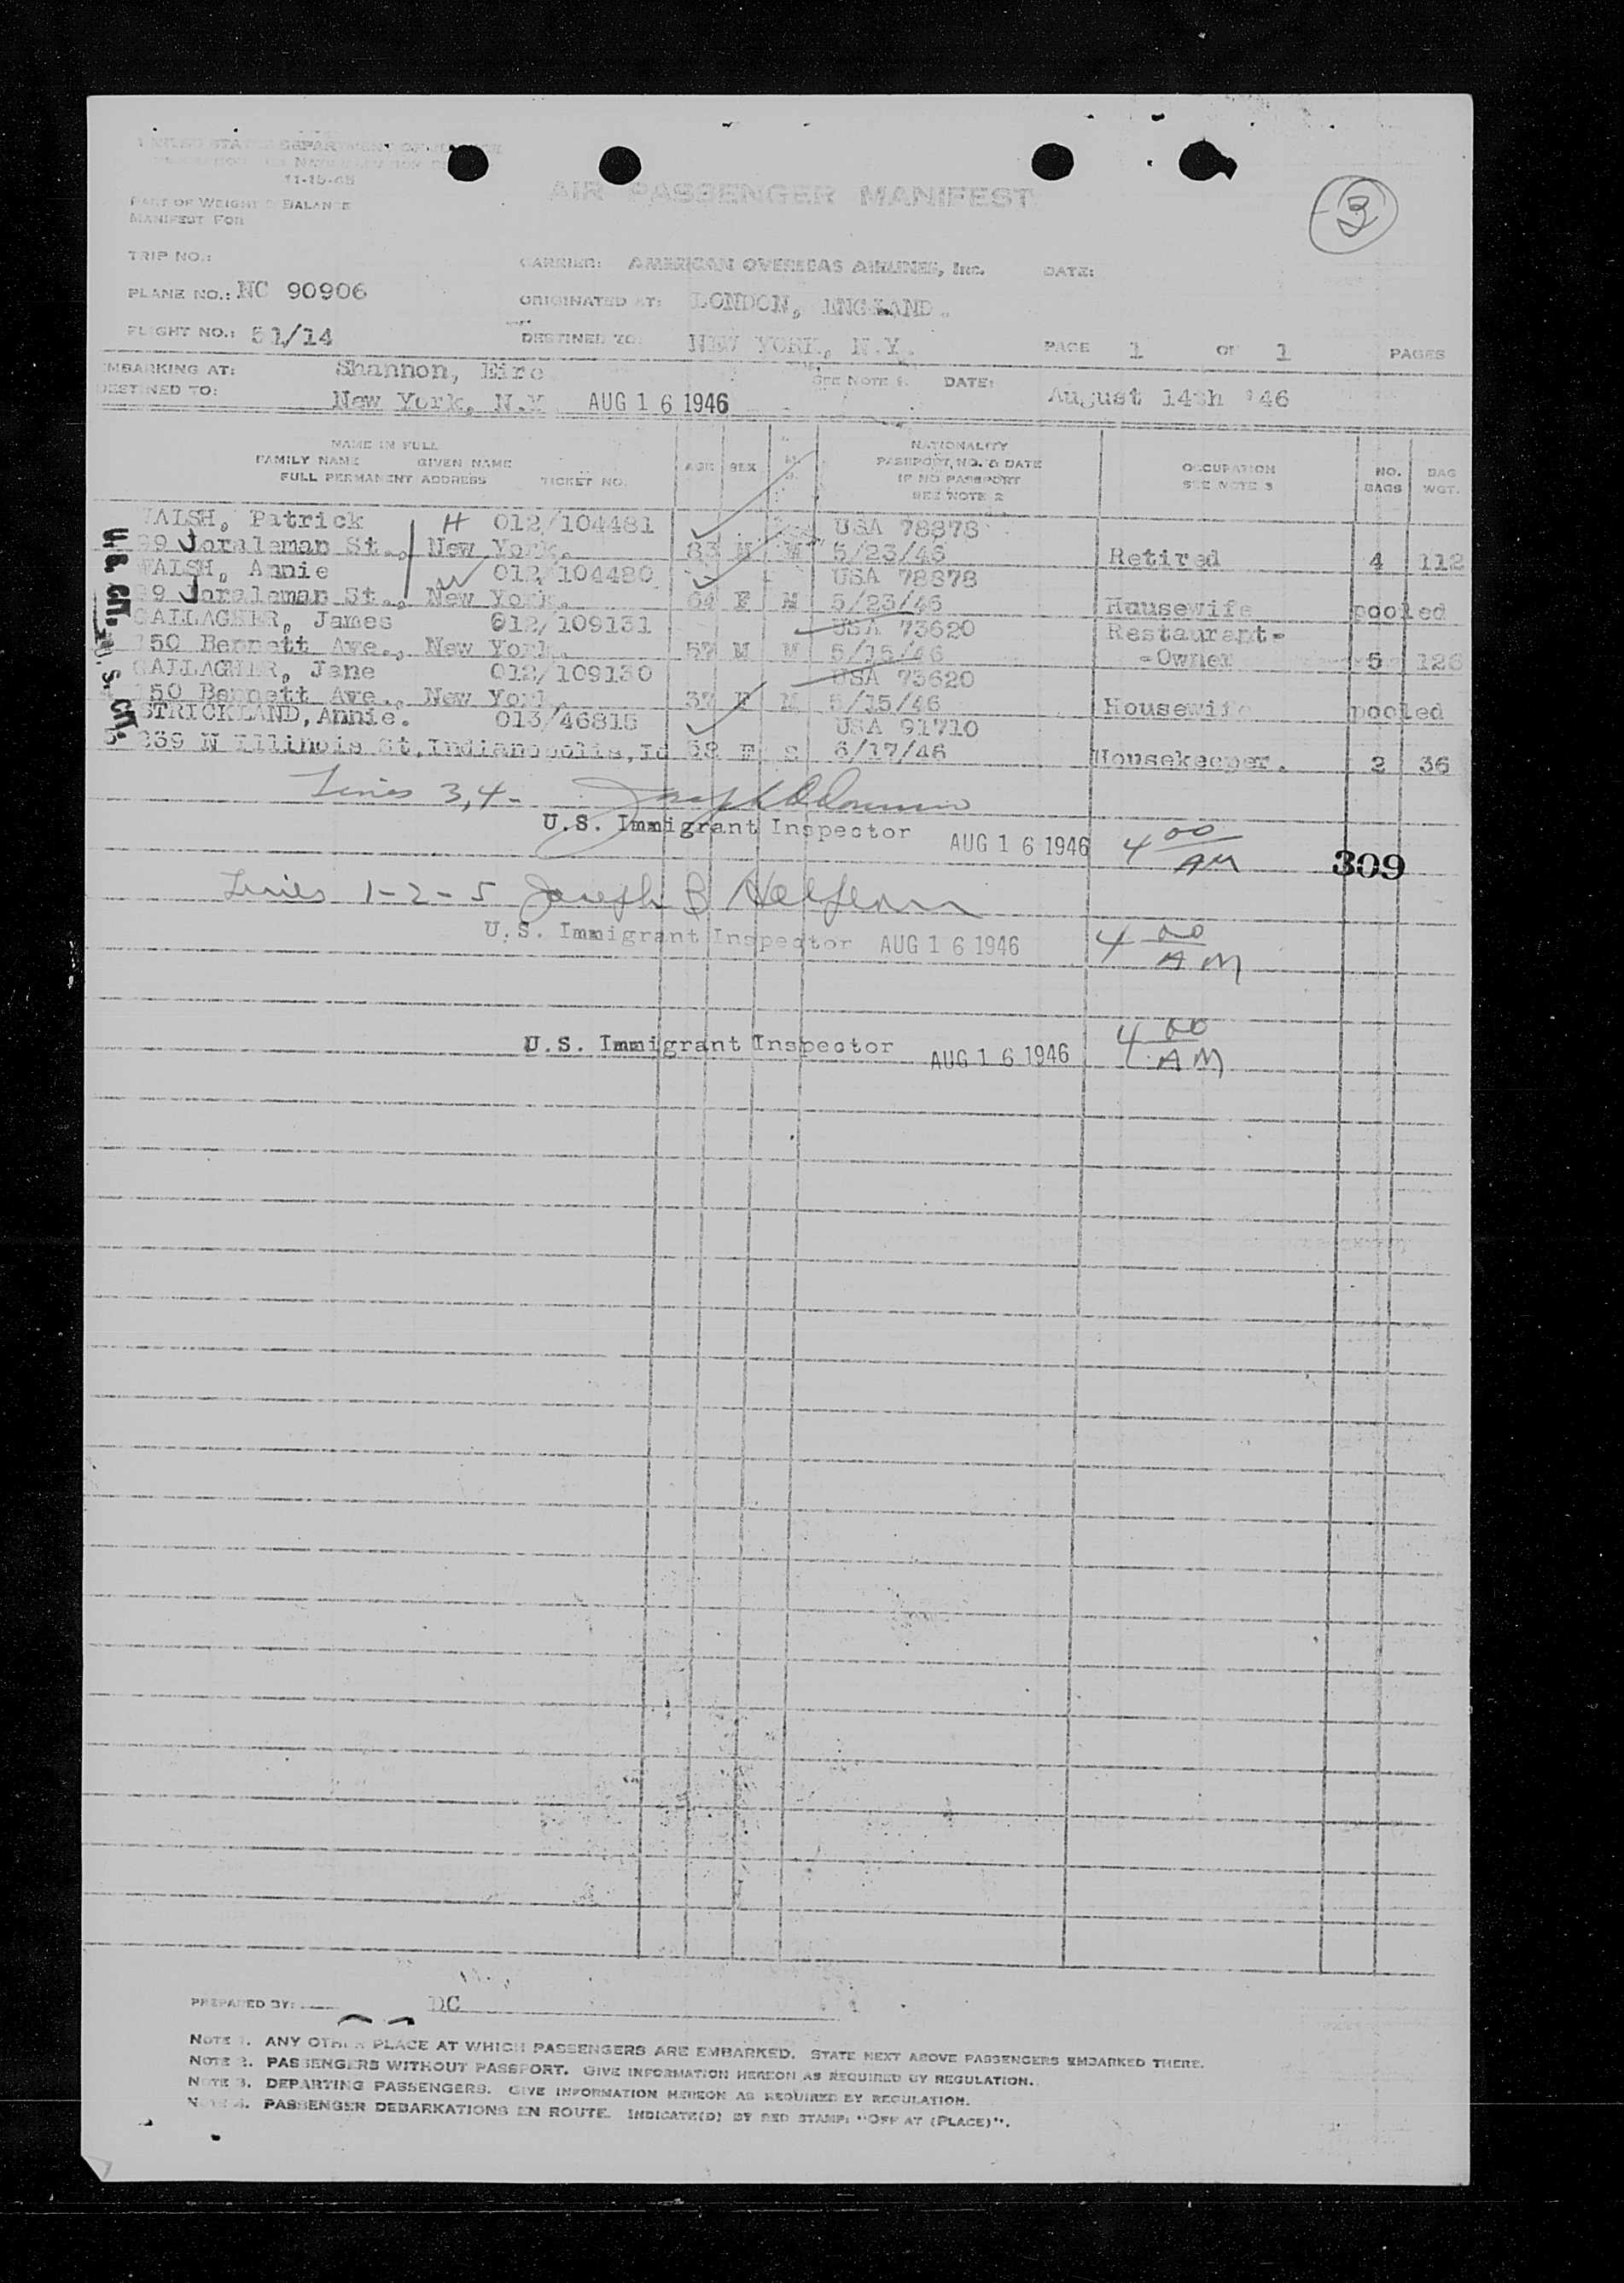 UNITED STATES DEPARTMENT OF JUSTICE
11-15-45
PART OF WEIGHT & BALANCE
MANIFEST FOR
AIR PASSENGER MANIFEST
3
TRIP NO.:
CARRIER: AMERICAN OVERSEAS AIRLINES, Inc. DATE:
PLANE NO.: NC 90906
ORIGINATED AT: LONDON, ENGLAND.
FLIGHT NO.: 51/14
DESTINED TO: NEW YORK, N.Y. PAGE 1 OF 1 PAGES
EMBARKING AT: Shannon, Eire SEE NOTE 1. DATE: August 14th '46
DESTINED TO: New York, N.Y. AUG 16 1946
NAME IN FULL
FAMILY NAME GIVEN NAME
FULL PERMANENT ADDRESS TICKET NO.
AGE SEX
NATIONALITY
PASSPORT, NO. & DATE
IF NO PASSPORT
SEE NOTE 2
OCCUPATION
SEE NOTE 3
NO. BAGS
BAG WGT.
WALSH, Patrick H 012/104481 USA 78878
99 Joraleman St., New York. 83 M M 5/23/46 Retired 4 112
WALSH, Annie 012/104480 USA 78878
99 Joraleman St., New York. 64 F M 5/23/46 Housewife pooled
GALLAGHER, James 012/109131 USA 73620 Restaurant-
150 Bennett Ave., New York. 57 M M 5/15/46 -Owner 5 126
GALLAGHER, Jane 012/109130 USA 73620
150 Bennett Ave., New York. 37 F M 5/15/46 Housewife pooled
STRICKLAND, Annie. 013/46815 USA 91710
239 N Illinois St, Indianopolis, Id 58 F S 6/17/46 Housekeeper. 2 36
U.S. CIT.
U.S. CIT.
Lines 3,4-
U.S. Immigrant Inspector AUG 16 1946 4 00 AM
309
Lines 1-2-5 Joseph B
U.S. Immigrant Inspector AUG 16 1946 4 00 AM
U.S. Immigrant Inspector AUG 16 1946 4 00 AM
PREPARED BY: DC
NOTE 1. ANY OTHER PLACE AT WHICH PASSENGERS ARE EMBARKED. STATE NEXT ABOVE PASSENGERS EMBARKED THERE.
NOTE 2. PASSENGERS WITHOUT PASSPORT. GIVE INFORMATION HEREON AS REQUIRED BY REGULATION.
NOTE 3. DEPARTING PASSENGERS. GIVE INFORMATION HEREON AS REQUIRED BY REGULATION.
NOTE 4. PASSENGER DEBARKATIONS EN ROUTE. INDICATE(D) BY RED STAMP: "OFF AT (PLACE)".